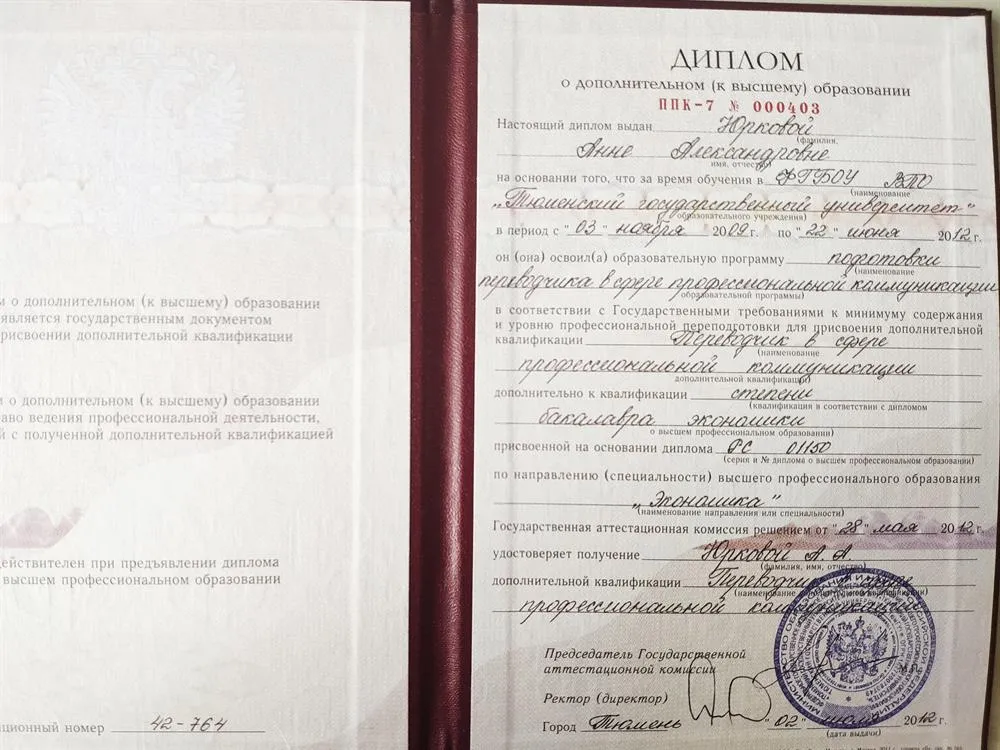 м о дополнительном (к высшему) образовании
является государственным документом
присвоении дополнительной квалификации
м о дополнительном (к высшему) образовании
аво ведения профессиональной деятельности,
й с полученной дополнительной квалификацией
действителен при предъявлении диплома
высшем профессиональном образовании
ационный номер 42-764
ДИПЛОМ
о дополнительном (к высшему) образовании
ППК-7 № 000403
Настоящий диплом выдан Юрковой
(фамилия,
Анне Александровне
имя, отчество)
на основании того, что за время обучения в ФГБОУ ВПО
(наименование
"Тюменский государственный университет"
образовательного учреждения)
в период с "03" ноября 2009 г. по "22" июня 2012 г.
он (она) освоил(а) образовательную программу подготовки
(наименование
переводчика в сфере профессиональной коммуникации
образовательной программы)
в соответствии с Государственными требованиями к минимуму содержания
и уровню профессиональной переподготовки для присвоения дополнительной
квалификации Переводчик в сфере
(наименование
профессиональной коммуникации
дополнительной квалификации)
дополнительно к квалификации степени
(квалификация в соответствии с дипломом
бакалавра экономики
о высшем профессиональном образовании)
присвоенной на основании диплома РС 01150
(серия и № диплома о высшем профессиональном образовании)
по направлению (специальности) высшего профессионального образования
"Экономика"
(наименование направления или специальности)
Государственная аттестационная комиссия решением от "28" мая 2012 г.
удостоверяет получение Юрковой А. А
(фамилия, имя, отчество)
дополнительной квалификации Переводчик в сфере
(наименование дополнительной квалификации)
профессиональной коммуникации
Председатель Государственной
аттестационной комиссии
Ректор (директор)
Город Тюмень "02" июля 2012 г.
(дата выдачи)